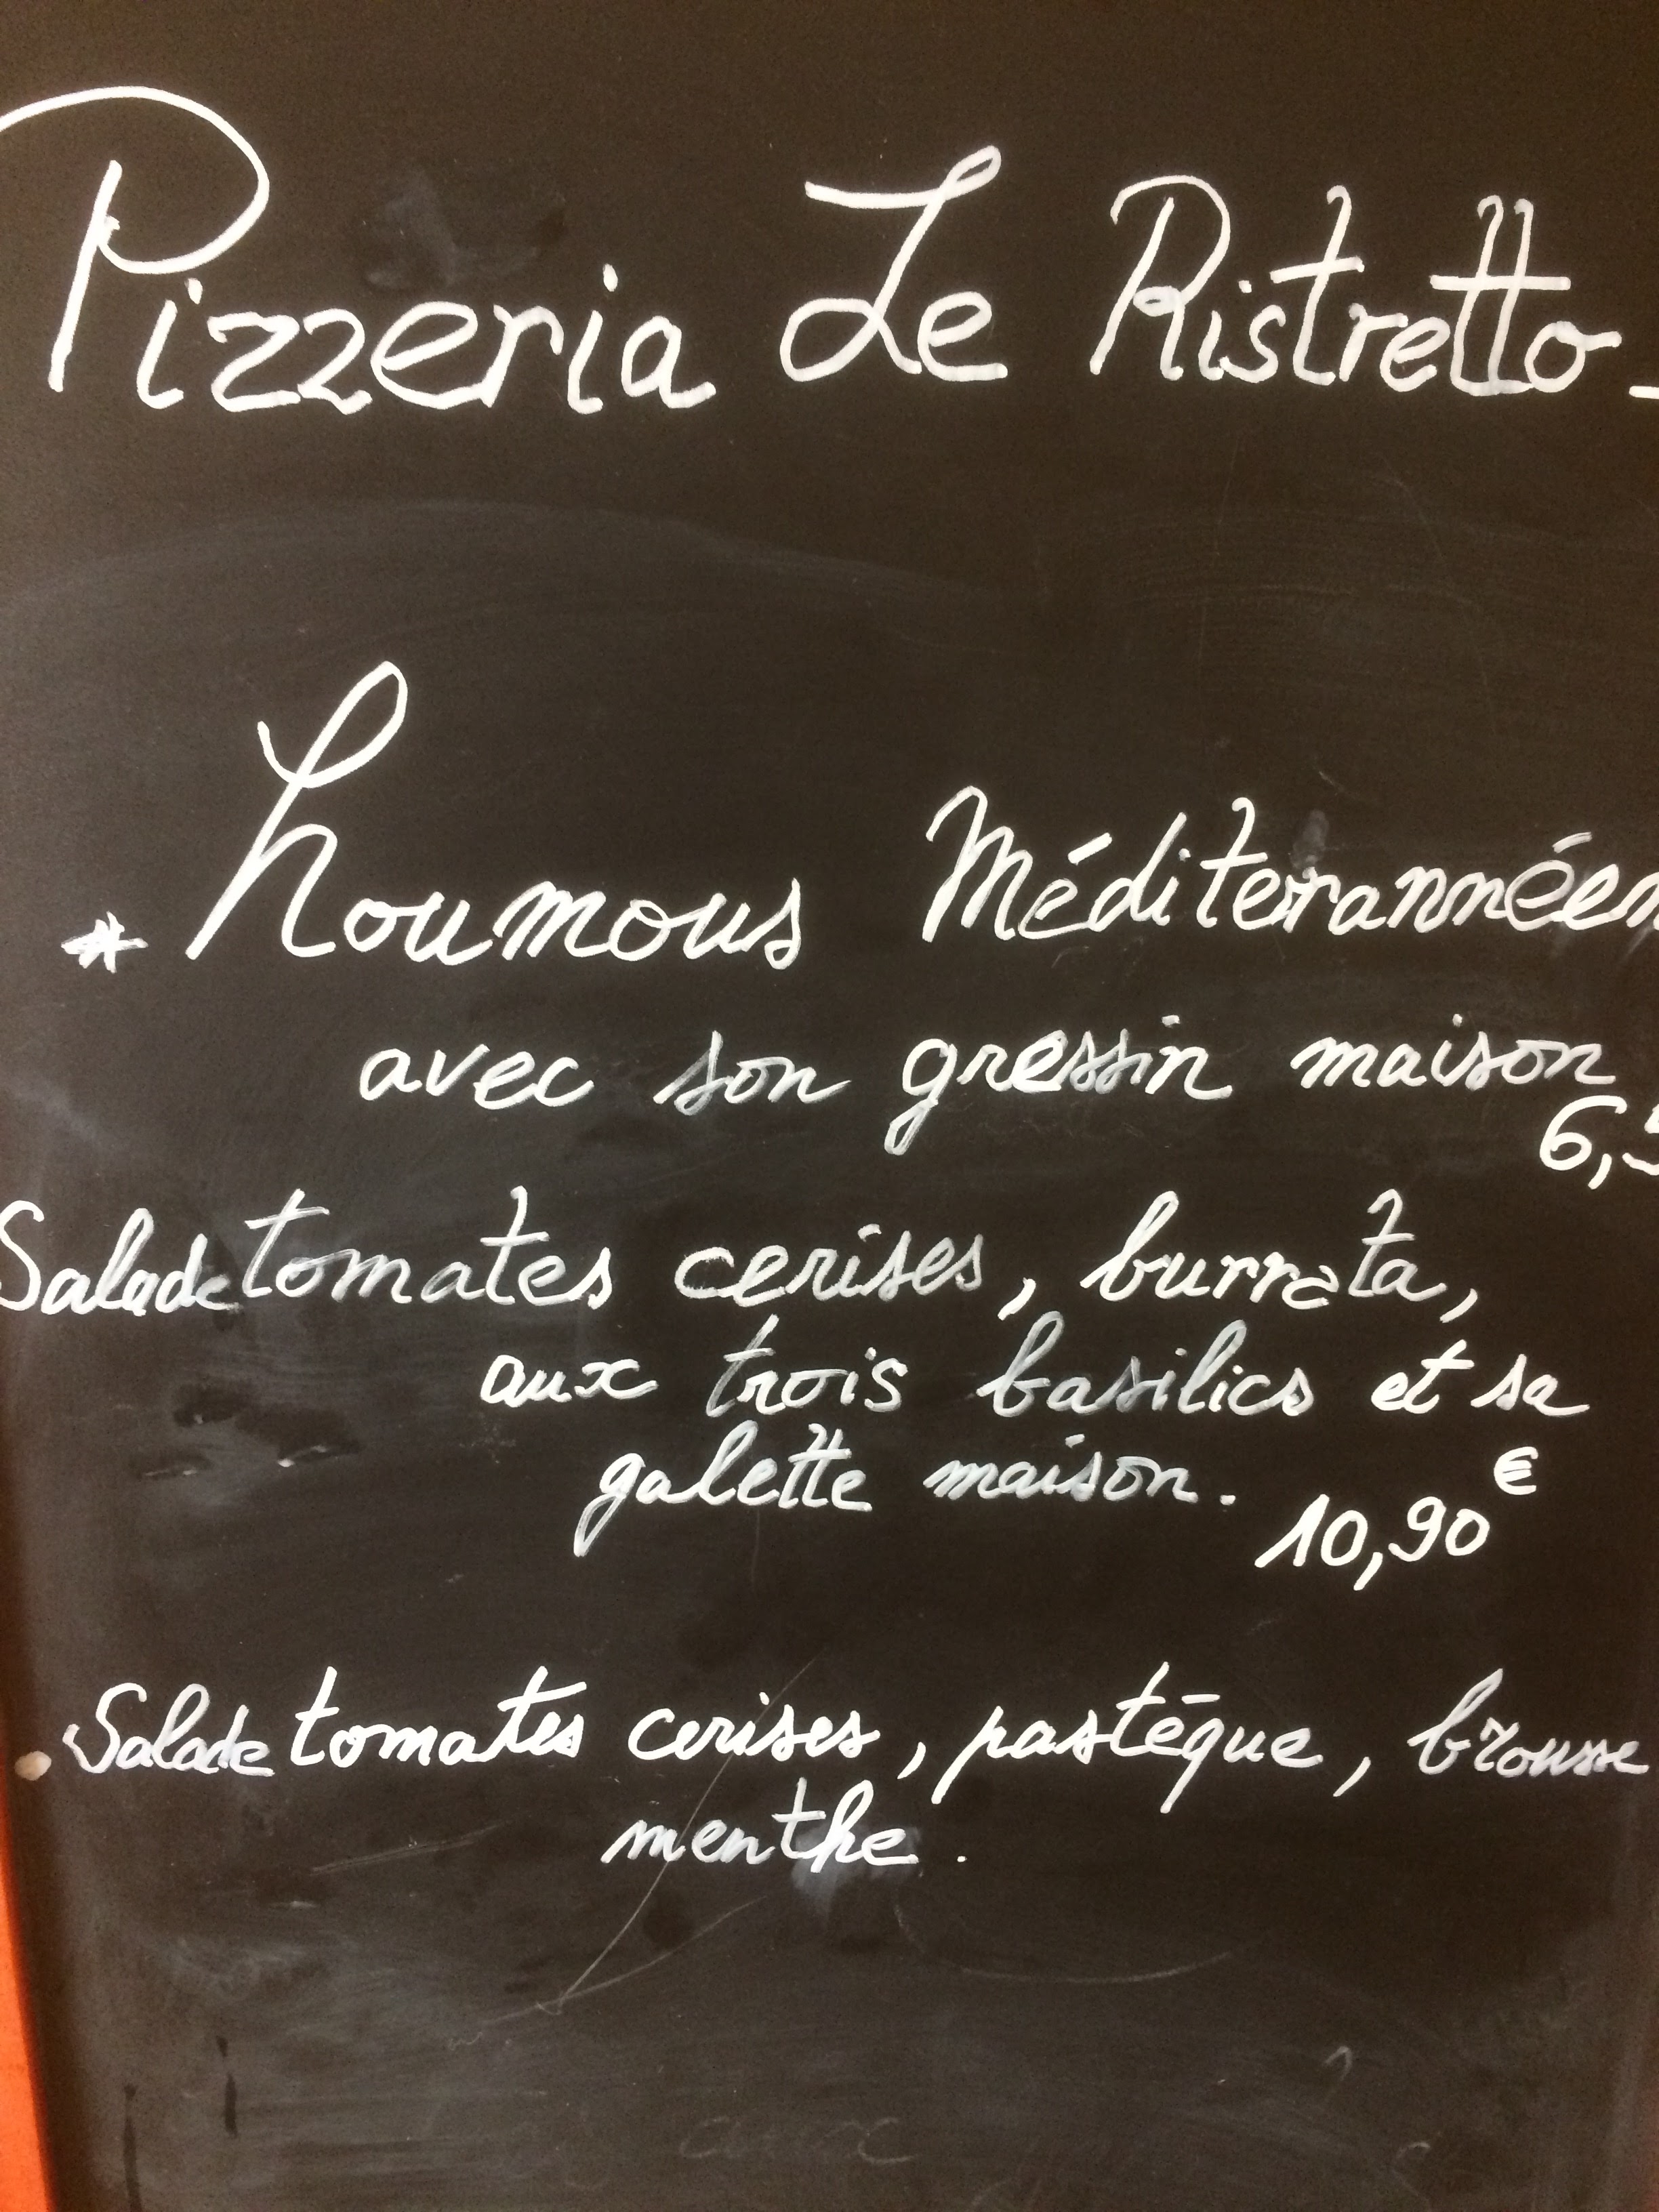 Pizzeria Le Ristretto -
* houmous Méditerannéen
avec son gressin maison
6,5
Salade tomates cerises, burrata,
aux trois basilics et sa
galette maison.
10,90 €
. Salade tomates cerises, pastèque, brousse
menthe.